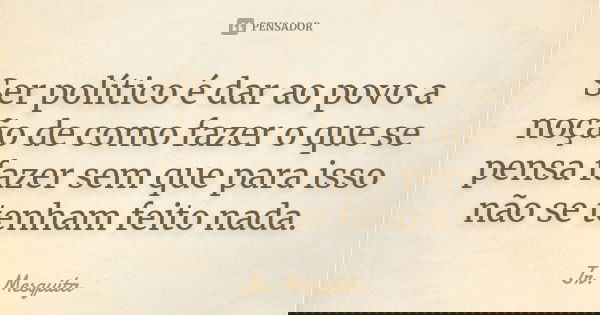 PENSADOR
Ser político é dar ao povo a
noção de como fazer o que se
pensa fazer sem que para isso
não se tenham feito nada.
Jr. Mesquita